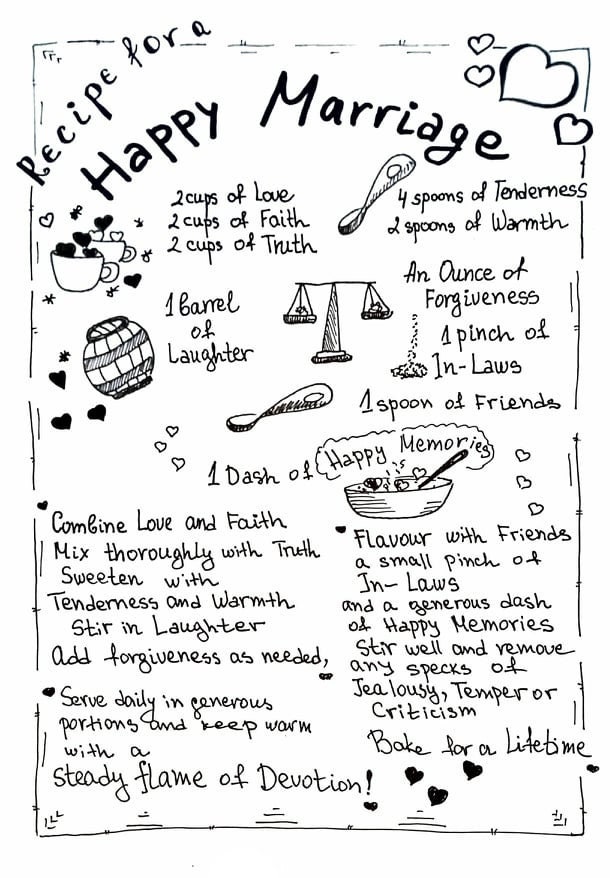 Recipe for a
Happy Marriage
2 cups of Love
2 cups of Faith
2 cups of Truth
4 spoons of Tenderness
2 spoons of Warmth
1 barrel
of
Laughter
An Ounce of
Forgiveness
1 pinch of
In-Laws
1 spoon of Friends
1 Dash of Happy Memories
Combine Love and Faith
Mix thoroughly with Truth
Sweeten with
Tenderness and Warmth
Stir in Laughter
Add forgiveness as needed,
Flavour with Friends
a small pinch of
In-Laws
and a generous dash
of Happy Memories
Stir well and remove
any specks of
Jealousy, Temper or
Criticism
Bake for a Lifetime
Serve daily in generous
portions and keep warm
with a
steady flame of Devotion!